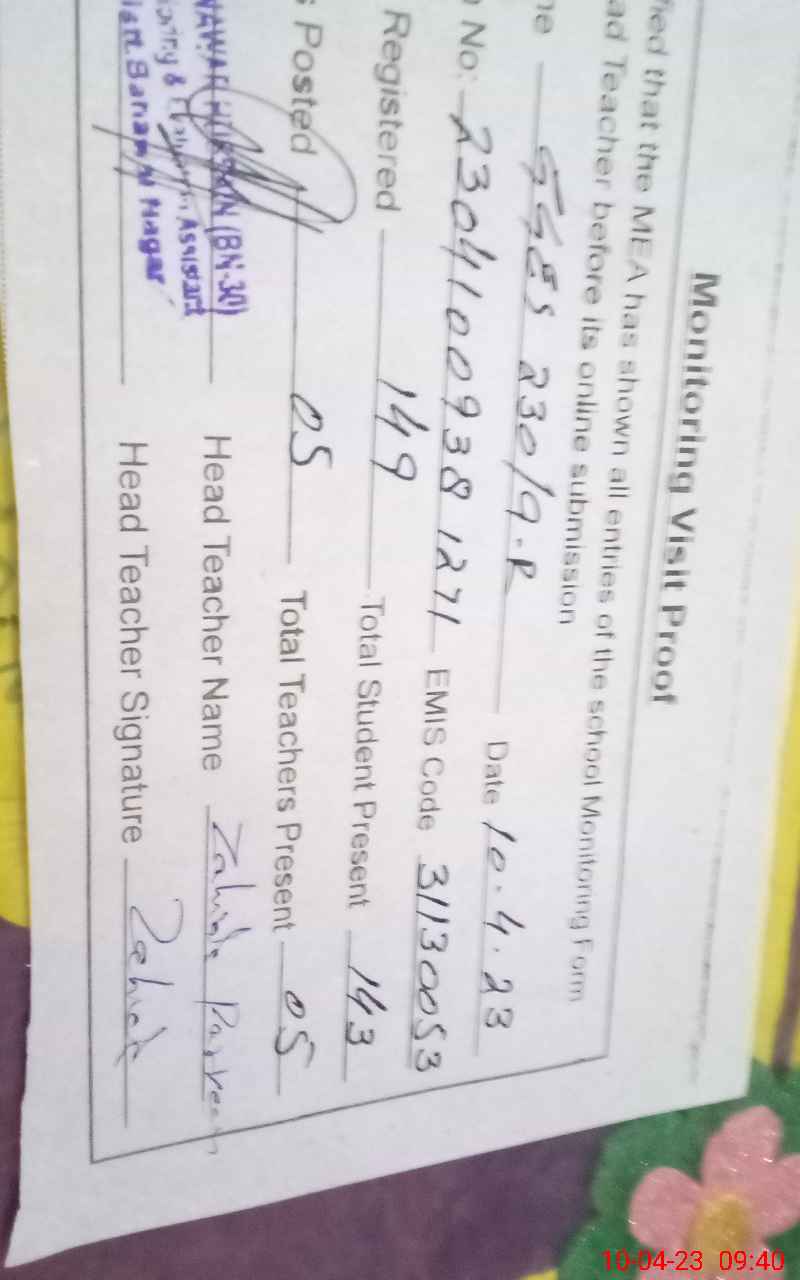 Monitoring Visit Proof
fied that the MEA has shown all entries of the school Monitoring Form
ad Teacher before its online submission
me GGES 230/9-R Date 10.4.23
No: 2304100938 1271 EMIS Code 31130053
Registered 149 Total Student Present 143
s Posted 05 Total Teachers Present 05
NAWAR HUSSAIN (BN-30) Head Teacher Name Zahida Parveen
oring & Evaluation Assistant
istt. Bahawal Nagar Head Teacher Signature Zahida
10-04-23 09:40